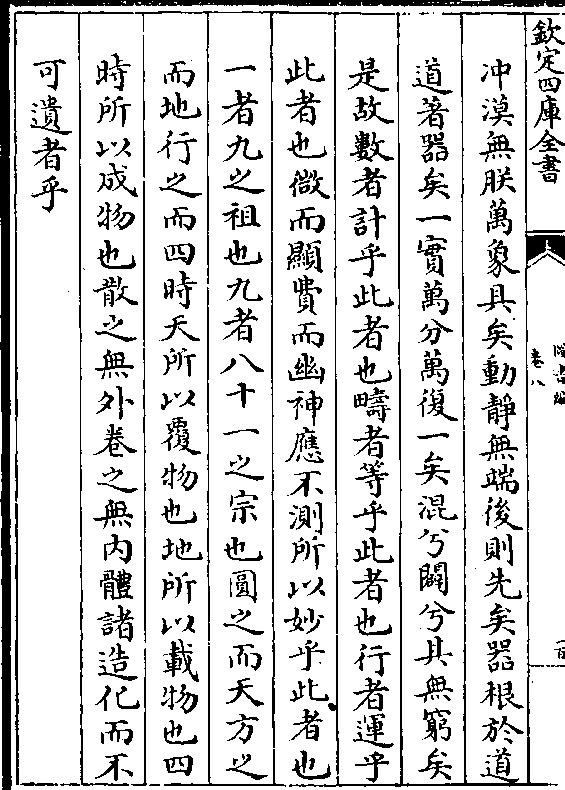 欽定四庫全書
卷八
冲漠無朕萬象具矣動靜無端後則先矣器根於道
道著器矣一實萬分萬復一矣混兮闢兮其無窮矣
是故數者計乎此者也疇者等乎此者也行者運乎
此者也微而顯費而幽神應不測所以妙乎此者也
一者九之祖也九者八十一之宗也圓之而天方之
而地行之而四時天所以覆物也地所以載物也四
時所以成物也散之無外卷之無内體諸造化而不
可遺者乎